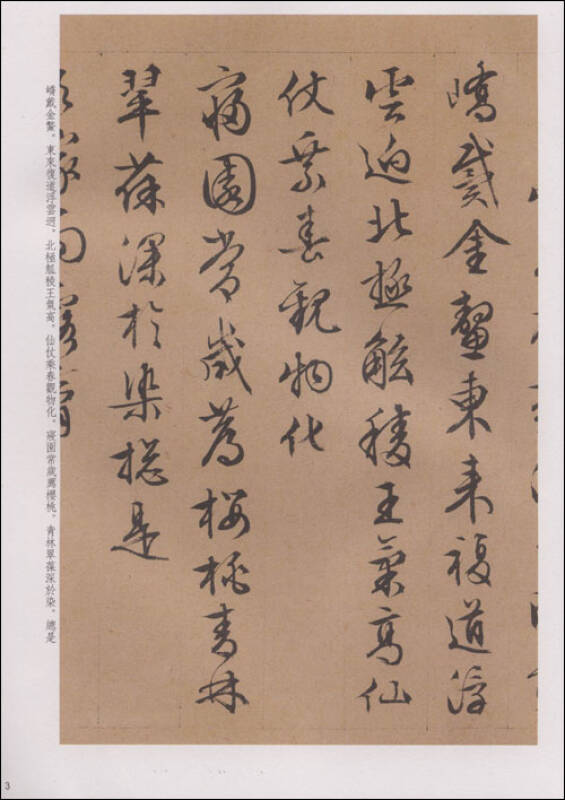 嶠戴金鰲東来複道浮
雲迫北極觚稜王氣高仙
仗乗春觀物化
寢園常歲薦櫻桃青林
翠葆深於染總是
嶠戴金鰲。東來復道浮雲迥。北極觚稜王氣高。仙仗乘春觀物化。寢園常歲薦櫻桃。青林翠葆深於染。總是
3